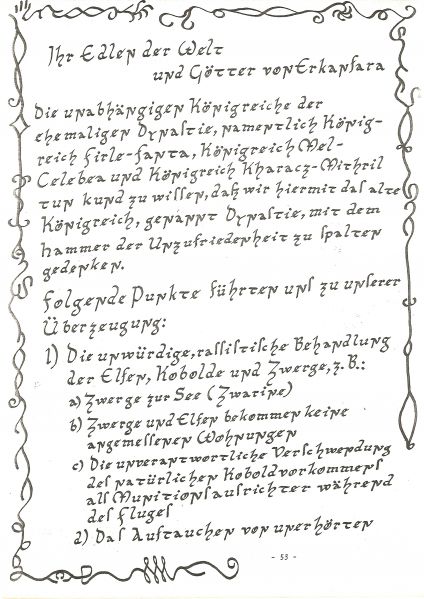 Ihr Edlen der Welt
und Götter von Erkanfara
Die unabhängigen Königreiche der
ehemaligen Dynastie, namentlich König-
reich Firle-Fanta, Königreich Mel-
Celebea und Königreich Kharacz-Mithril
tun kund zu wissen, daß wir hiermit das alte
Königreich, genannt Dynastie, mit dem
Hammer der Unzufriedenheit zu spalten
gedenken.
Folgende Punkte führten uns zu unserer
Überzeugung:
1) Die unwürdige, rassistische Behandlung
der Elfen, Kobolde und Zwerge, z. B.:
a) Zwerge zur See (Zwarine)
b) Zwerge und Elfen bekommen keine
angemessenen Wohnungen
c) Die unverantwortliche Verschwendung
des natürlichen Koboldvorkommens
als Munitionsausrichter während
des Fluges
d) Das Auftauchen von unerhörten
- 53 -